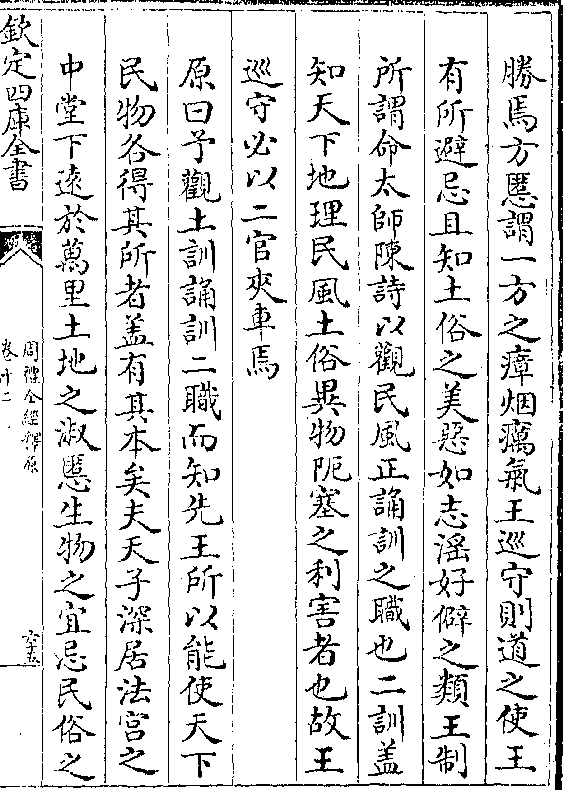 勝焉方慝謂一方之瘴烟癘氣王巡守則道之使王
有所避忌且知土俗之美惡如志滛好僻之類王制
所謂命太師陳詩以觀民風正誦訓之職也二訓盖
知天下地理民風土俗異物阨塞之利害者也故王
巡守必以二官夾車焉
原曰予觀土訓誦訓二職而知先王所以能使天下
民物各得其所者盖有其本矣夫天子深居法宫之
中堂下逺於萬里土地之淑慝生物之宜忌民俗之
欽定四庫全書
周禮全經釋原
卷十二